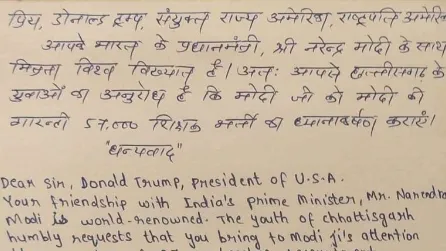 प्रिय, डोनाल्ड ट्रम्प, संयुक्त राज्य अमेरिका, राष्ट्रपति अमेरि
आपके भारत के प्रधानमंत्री, श्री नरेन्द्र मोदी के साथ
मित्रता विश्व विख्यात है। अतः आपसे छत्तीसगढ़ के
युवाओं का अनुरोध है कि मोदी जी को मोदी की
गारन्टी 57,000 शिक्षक भर्ती का ध्यानाकर्षण कराएं।
"धन्यवाद"
Dear Sir, Donald Trump, president of U.S.A.
Your friendship with India's prime Minister, Mr. Narendra
Modi is world-renowned. The youth of chhattisgarh
humbly requests that you bring to Modi ji's attention